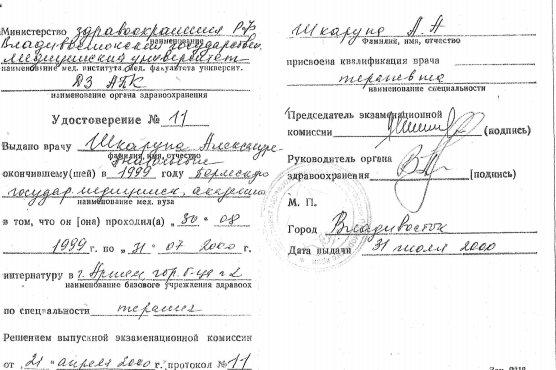 Министерство здравоохранения РФ
наименование
Владивостокский государствен.
медицинский университет
наименование мед. института, мед. факультета университ.
ДЗ АПК
наименование органа здравоохранения
Удостоверение № 11
Выдано врачу Шкаруна Александре
фамилия, имя, отчество
окончившему(шей) в 1999 году
государ. медицинск. академию
наименование мед. вуза
в том, что он [она) проходил(а) „30 “ 08
1999 г. по „31“ 07 2000 г.
интернатуру в г. Артем гор. б-це № 2
наименование базового учреждения здравоох
по специальности терапия
Решением выпускной экзаменационной комиссии
от „21“ апреля 2000 г. протокол № 11
Шкаруна А. Н
Фамилия, имя, отчество
присвоена квалификация врача
терапевта
наименование специальности
Председатель экзаменационной
комиссии (подпись)
Руководитель органа
здравоохранения [подпись)
М. П.
Город Владивосток
Дата выдачи 31 июля 2000